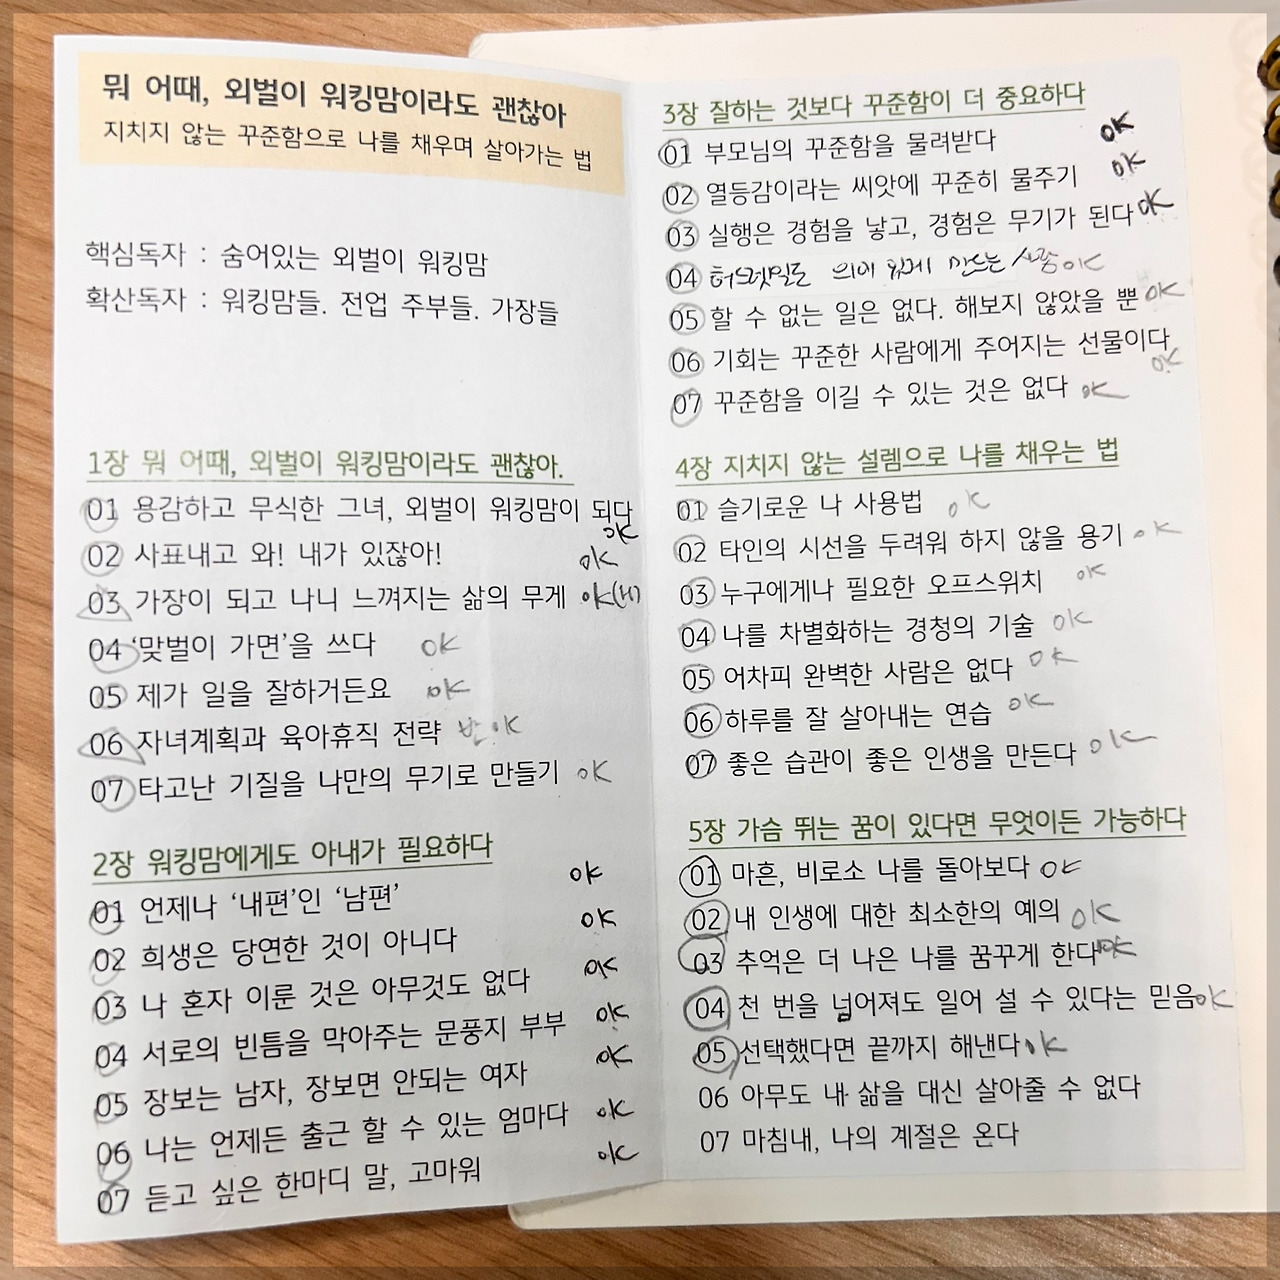 뭐 어때, 외벌이 워킹맘이라도 괜찮아
지치지 않는 꾸준함으로 나를 채우며 살아가는 법
핵심독자 : 숨어있는 외벌이 워킹맘
확산독자 : 워킹맘들. 전업 주부들. 가장들
1장 뭐 어때, 외벌이 워킹맘이라도 괜찮아.
01 용감하고 무식한 그녀, 외벌이 워킹맘이 되다 OK
02 사표내고 와! 내가 있잖아! OK
03 가장이 되고 나니 느껴지는 삶의 무게 OK
04 ‘맞벌이 가면’을 쓰다 OK
05 제가 일을 잘하거든요 OK
06 자녀계획과 육아휴직 전략 반 OK
07 타고난 기질을 나만의 무기로 만들기 OK
2장 워킹맘에게도 아내가 필요하다
01 언제나 ‘내편’인 ‘남편’ OK
02 희생은 당연한 것이 아니다 OK
03 나 혼자 이룬 것은 아무것도 없다 OK
04 서로의 빈틈을 막아주는 문풍지 부부 OK
05 장보는 남자, 장보면 안되는 여자 OK
06 나는 언제든 출근 할 수 있는 엄마다 OK
07 듣고 싶은 한마디 말, 고마워 OK
3장 잘하는 것보다 꾸준함이 더 중요하다
01 부모님의 꾸준함을 물려받다 OK
02 열등감이라는 씨앗에 꾸준히 물주기 OK
03 실행은 경험을 낳고, 경험은 무기가 된다 OK
04 허드렛일도 의미 있게 만드는 사람 OK
05 할 수 없는 일은 없다. 해보지 않았을 뿐 OK
06 기회는 꾸준한 사람에게 주어지는 선물이다 OK
07 꾸준함을 이길 수 있는 것은 없다 OK
4장 지치지 않는 설렘으로 나를 채우는 법
01 슬기로운 나 사용법 OK
02 타인의 시선을 두려워 하지 않을 용기 OK
03 누구에게나 필요한 오프스위치 OK
04 나를 차별화하는 경청의 기술 OK
05 어차피 완벽한 사람은 없다 OK
06 하루를 잘 살아내는 연습 OK
07 좋은 습관이 좋은 인생을 만든다 OK
5장 가슴 뛰는 꿈이 있다면 무엇이든 가능하다
01 마흔, 비로소 나를 돌아보다 OK
02 내 인생에 대한 최소한의 예의 OK
03 추억은 더 나은 나를 꿈꾸게 한다 OK
04 천 번을 넘어져도 일어 설 수 있다는 믿음 OK
05 선택했다면 끝까지 해낸다 OK
06 아무도 내 삶을 대신 살아줄 수 없다
07 마침내, 나의 계절은 온다